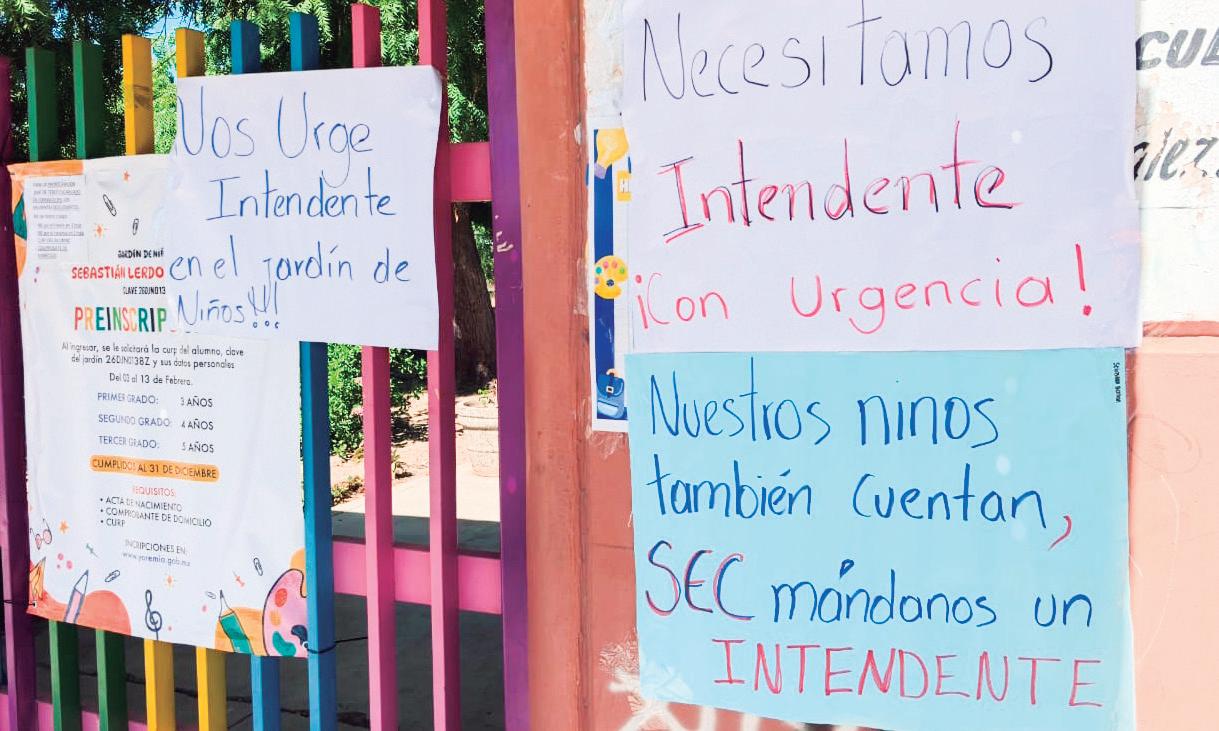 Nos Urge
Intendente
en el jardín de
Niños!!!
JARDÍN DE NIÑ
SEBASTIÁN LERDO
CLAVE 26DJN013
PREINSCRIP
Al ingresar, se le solicitará la curp del alumno, clave
del jardín 26DJN0138Z y sus datos personales
Del 03 al 13 de Febrero.
PRIMER GRADO: 3 AÑOS
SEGUNDO GRADO: 4 AÑOS
TERCER GRADO: 5 AÑOS
CUMPLIDOS AL 31 DE DICIEMBRE
REQUISITOS:
• ACTA DE NACIMIENTO
• COMPROBANTE DE DOMICILIO
• CURP
INCRIPCIONES EN:
www.yoremia.gob.mx
Necesitamos
Intendente
¡Con Urgencia!
Nuestros ninos
también cuentan,
SEC mándanos un
INTENDENTE
CUL